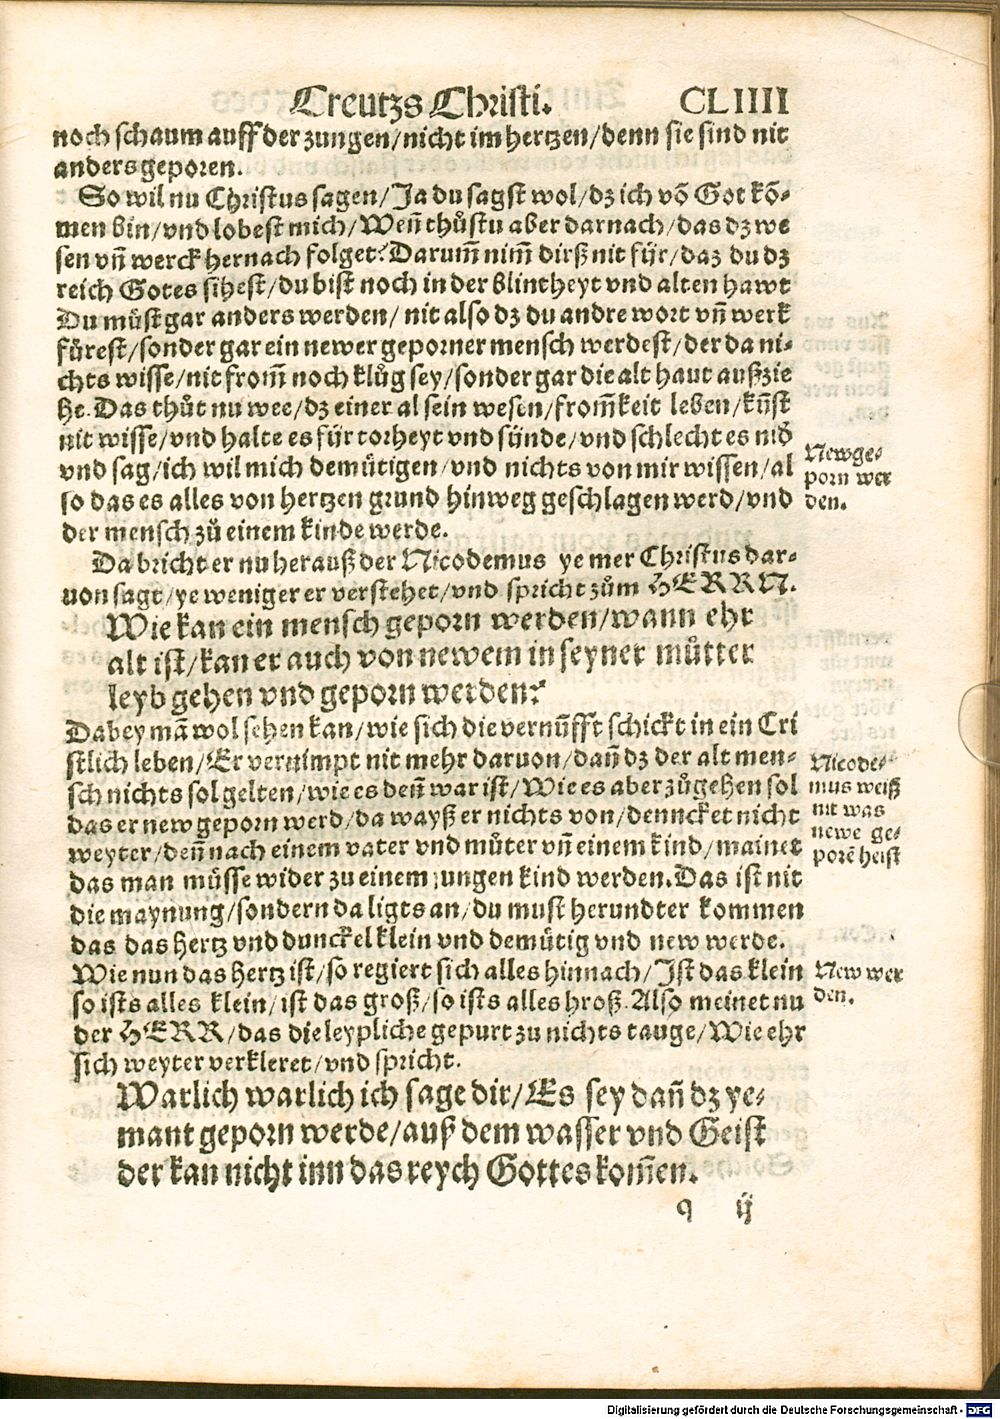 Creutzs Christi. CLIIII
noch schaum auff der zungen/nicht im hertzen/denn sie sind nit
anders geporen.
So wil nu Christus sagen/Ja du sagst wol/dz ich võ Got kõ-
men bin/vnd lobest mich/Weñ thůstu aber darnach/das dz we
sen vñ werck hernach folget? Darum̃ nim̃ dirß nit für/daz du dz
reich Gotes sihest/du bist noch in der blintheyt vnd alten hawt
Du můst gar anders werden/ nit also dz du andre wort vñ werk
fürest/sonder gar ein newer geporner mensch werdest/der da ni-
chts wisse/nit from̃ noch klůg sey/sonder gar die alt haut außzie
he. Das thůt nu wee/dz einer al sein wesen/from̃keit leben/kũst
nit wisse/vnd halte es für torheyt vnd sünde/vnd schlecht es nid̃
vnd sag/ich wil mich demütigen/vnd nichts von mir wissen/al
so das es alles von hertzen grund hinweg geschlagen werd/vnd
der mensch zů einem kinde werde.
Newge-
porn wer
den.
Da bricht er nu herauß der Nicodemus ye mer Christus dar-
uon sagt/ye weniger er verstehet/vnd spricht zům HERRN.
Wie kan ein mensch geporn werden/wann ehr
alt ist/kan er auch von newem in seyner můtter
leyb gehen vnd geporn werden?
Dabey mã wol sehen kan/wie sich die vernũfft schickt in ein Cri
stlich leben/Er vernimpt nit mehr daruon/dañ dz der alt men-
sch nichts sol gelten/wie es deñ war ist/Wie es aber zůgehen sol
das er new geporn werd/da wayß er nichts von/denncket nicht
weyter/deñ nach einem vater vnd můter vñ einem kind/mainet
das man müsse wider zu einem jungen kind werden. Das ist nit
die maynung/sondern da ligts an/du must herundter kommen
das das hertz vnd dunckel klein vnd demütig vnd new werde.
Nicode-
mus weiß
nit was
newe ge-
porẽ heist
Wie nun das hertz ist/so regiert sich alles hinnach/Ist das klein
so ists alles klein/ist das groß/so ists alles hroß. Also meinet nu
der HERR/das die leypliche gepurt zu nichts tauge/Wie ehr
sich weyter verkleret/vnd spricht.
New wer
den.
Warlich warlich ich sage dir/Es sey dañ dz ye-
mant geporn werde/auß dem wasser vnd Geist
der kan nicht inn das reych Gottes kom̃en.
q ij
Digitalisierung gefördert durch die Deutsche Forschungsgemeinschaft - DFG